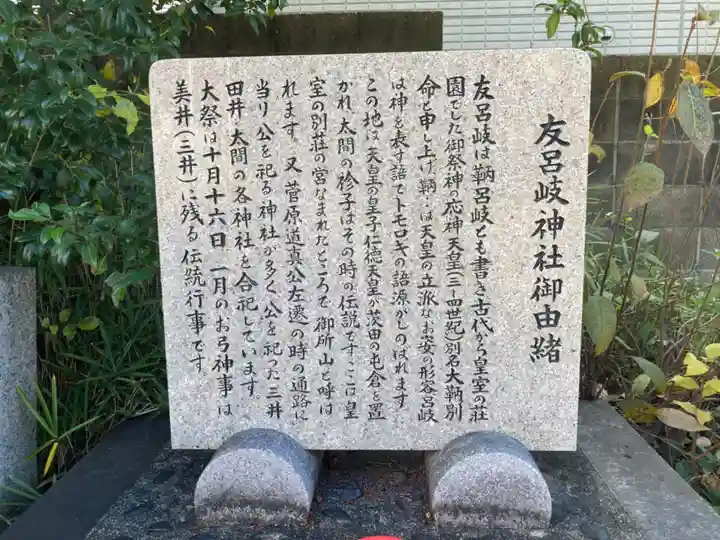 友呂岐神社御由緒
友呂岐は鞆呂岐とも書き古代から皇室の荘
園でした御祭神の応神天皇(三~四世紀)別名大鞆別
命と申し上げ、鞆・は天皇の立派なお姿の形容呂岐
は神を表す語でトモロキの語源がしのばれます
この地は、天皇の皇子仁徳天皇が茨田の屯倉を置
かれ、太間の衫子はその時の伝説です。ここは皇
室の別荘の営なまれたところで、御所山と呼ば
れます。又、菅原道真公左遷の時の通路に
当り、公を祀る神社が多く、公を祀った三井
田井、太間の各神社を合祀しています。
大祭は十月十六日、一月のお弓神事は
美井(三井)に残る伝統行事です。